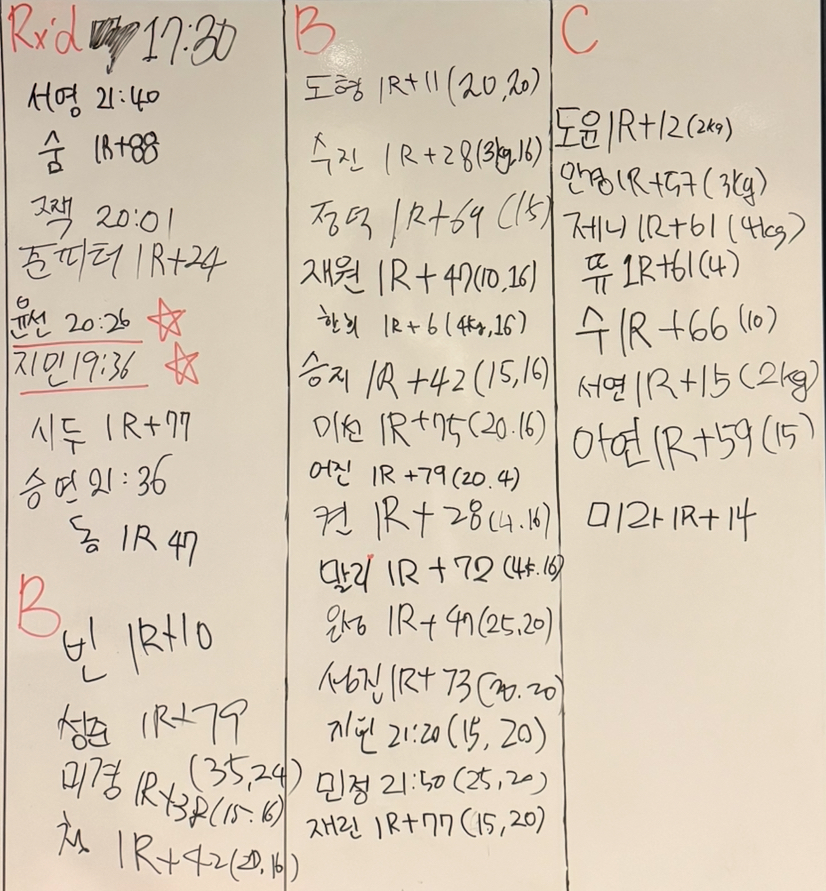 Rx'd 17:30
서영 21:40
숨 1R+88
잭 20:01
존피터 1R+24
윤선 20:26 ☆
지민 19:36 ☆
시두 1R+77
승연 21:36
동 1R 47
B
빈 1R+10
성준 1R+79
(35,24)
미경 1R+38(15.16)
1R+42(20,16)
B
도형 1R+11(20,20)
수진 1R+28(3kg,16)
정덕 1R+69(15)
재원 1R+47(10,16)
한희 1R+6(4kg,16)
승지 1R+42(15,16)
미선 1R+75(20.16)
어진 1R+79(20.4)
켠 1R+28(4.16)
말리 1R+72(4k.16)
완성 1R+47(25,20)
성진 1R+73(20.20)
지원 21:20(15,20)
민정 21:50(25,20)
재린 1R+77(15,20)
C
도윤 1R+12(2kg)
안영 1R+57(3kg)
제니 1R+61(4kg)
뜌 1R+61(4)
수 1R+66(10)
서연 1R+15(2kg)
아연 1R+59(15)
미라 1R+14